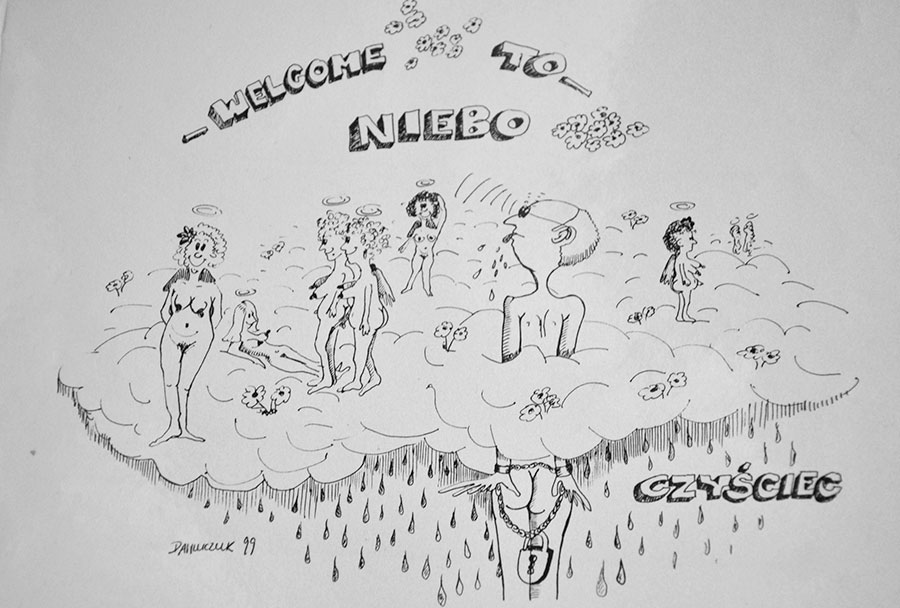 - WELCOME TO -
NIEBO
CZYŚCIEC
99